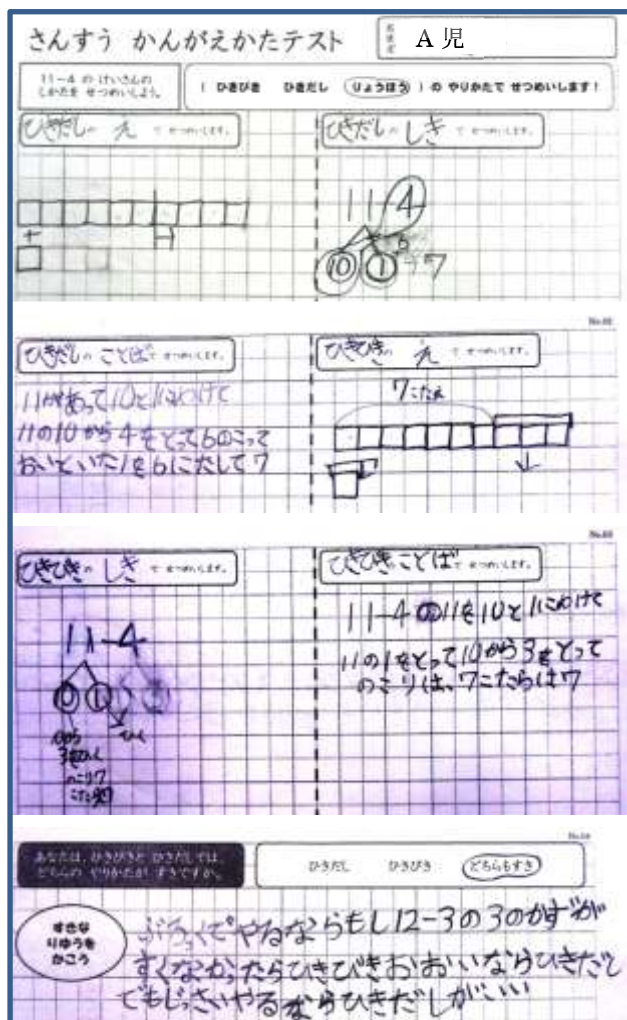 さんすう かんがえかたテスト
なまえ A 児
11-4 の けいさんの
しかたを せつめいしよう。
( ひきひき ひきだし りょうほう ) の やりかたで せつめいします!
ひきだしの え で せつめいします。
ひきだしの しき で せつめいします。
11 4
+
6
10 1 7
No.02
ひきだしの ことばで せつめいします。
ひきひきの え で せつめいします。
11があって10と1にわけて
11の10から4をとって6のこって
おいといた1を6にたして7
7こたえ
No.03
ひきひきの しき で せつめいします。
ひきひきのことばで せつめいします。
11-4
10 1
ひく
10から
3をひく
のこり7
11-4の11を10と1にわけて
11の1をとって10から3をとって
のこりは、7こたらは7
No.04
あなたは、ひきひきと ひきだしでは、
どちらの やりかたが すきですか。
ひきだし ひきひき どちらもすき
すきな
りゆうを
かこう
ぶろっくでやるならもし12-3の3のかずが
すくなかったらひきひきおおいならひきだし
でもじっさいやるならひきだしがいい